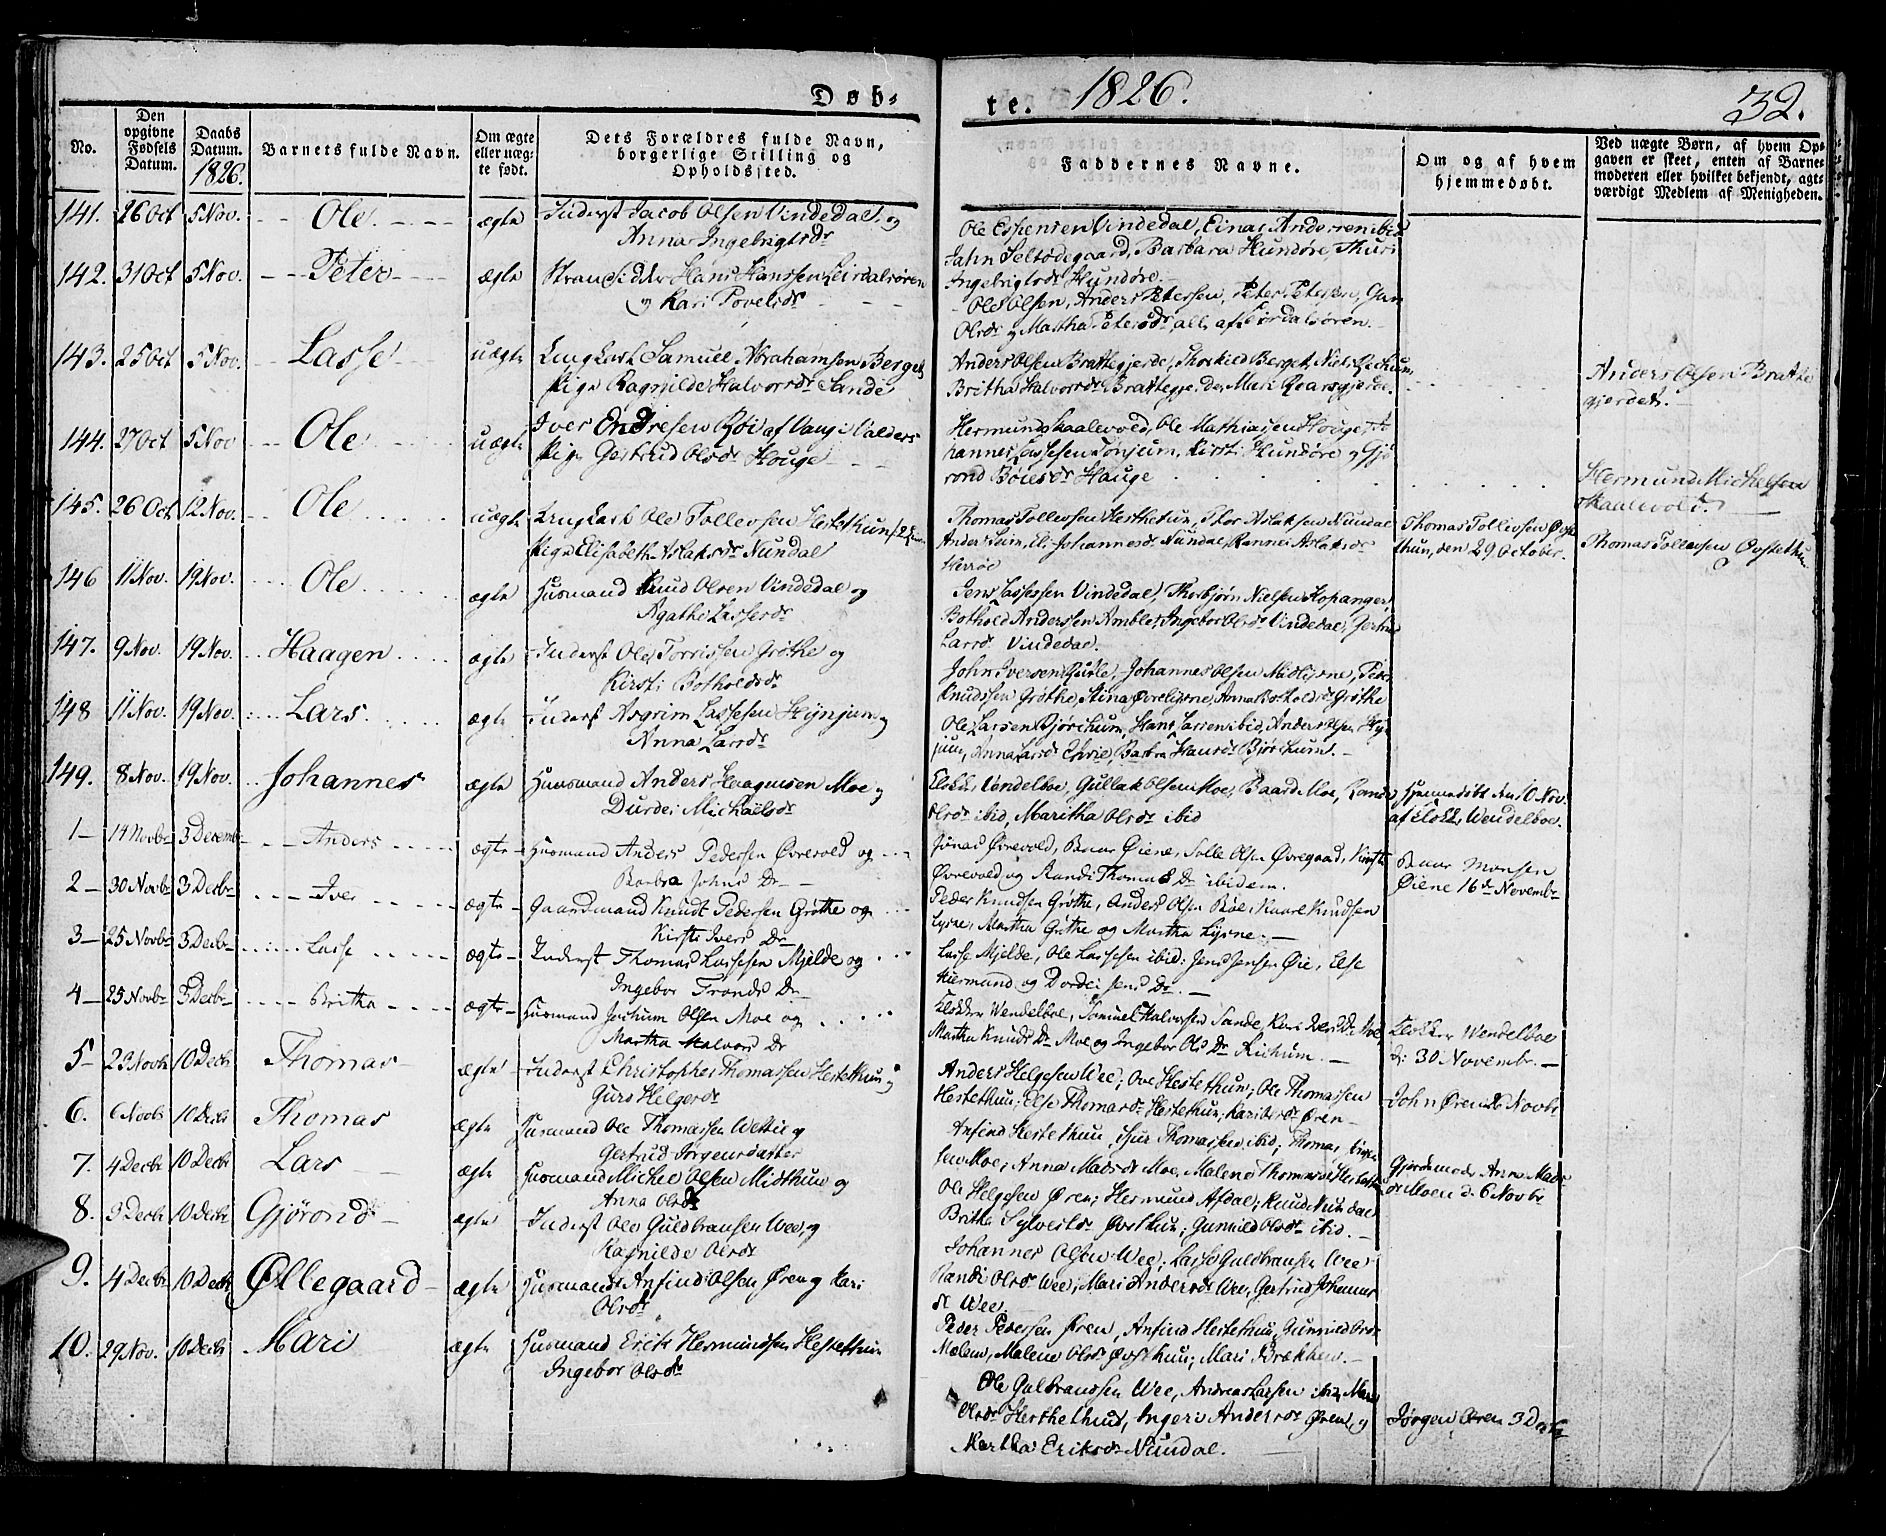 Døb-
te. 1826. 32.
No.
Den opgivne Fødsels Datum.
Daabs Datum. 1826.
Barnets fulde Navn.
Om ægte eller uægte født.
Dets Forældres fulde Navn, borgerlige Stilling og Opholdssted.
Faddernes Navne.
Om og af hvem hjemmedøbt.
Ved uægte Børn, af hvem Opgaven er skeet, enten af Barnemoderen eller hvilket bekjendt, agtværdigt Medlem af Menigheden.
141. 26 Oct 5 Nov. Ole ægte Inderst Jacob Olsen Vindedal, og
Anna Ingebrigtsdr
Ole Espensen Vindedal, Einar Andersen ibid
Jahn Seltødegaard, Barbara Hundøre, Thuri
Ingebrigtsdr Hundøre.
142. 31 Oct 5 Nov. Peter ægte Strandsidder Hans Hanssen Leirdalsøren
og Kari Povelsdr
Ole Olsen, Anders Petersen, Peter Petersen,
Olsdr og Martha Petersdr, alle af Leirdalsøren.
143. 25 Oct 5 Nov. Lasse uægte Ungkarl Samuel Abrahamsen Berget
Pige Ragnilde Halvorsdr Sande
Anders Olsen Brattegjerde, Thorkild Berget, Niels
Britha Halvorsdr Brattegjerde, Mari
Anders Olsen Bratte
gjerdet.
144. 27 Oct 5 Nov Ole uægte Iver Endresen Røi af Vang i Valders
Pige Gertrud Olsdr Houge
Hermund Skaalevold, Ole Mathiasen Houge, Jo
hannes Lassesen Tønjum, Kirsti Hundøre og Gjø
rond Bøiesdr Hauge
Hermund Michelsen
Skaalevold.
145. 26 Oct 12 Nov. Ole uægte Ungkarl Ole Tollevsen Hestethun
Pige Elisabeth Aslaksdr Nundal
Thomas Tollevsen Hesthetun, Thor Aslaksen Nundal
Anders Johannesdr Nundal, Rannei Aslaksdr
Thomas Tollevsen Øvste
thun, den 29 October.
Thomas Tollevsen Øvstethun
146 11 Nov. 19 Nov. Ole ægte Husmand Knud Olsen Vindedal og
Agathe Lassesdr
Jens Lassessen Vindedal, Thorbjørn Nielsen Kopanger,
Bothold Anderssen Amble, Ingebor Olsdr Vindedal, Gertrud
Larsdr Vindedal.
147. 9 Nov. 19 Nov. Haagen ægte Inderst Ole Torrissen Grøthe og
Kirsti Botholdsdr
John Iversen Johannes Olsen Midlysne, Peder
Knudssen Grøthe, Stina Øvrelysne, Anna Botholdsdr Grøthe
148 11 Nov. 19 Nov. Lars ægte Inderst Asgrim Lassesen Hynjum og
Anna Larsdr
Ole Larsen Bjørkhum, Hans Larsen ibid, Anders Olsen Hyn
jum, Anna Larsdr Barbra Hansdr Bjørkhum.
149. 8 Nov. 19 Nov. Johannes ægte Husmand Anders Haagensen Moe og
Durdei Michaelsdr
Klokker Vendelboe, Gullak Olsen Moe, Baard Moe, Randi
Olsdr ibid, Maritha Olsdr ibid
Hjemmedøbt den 10 Nov.
af Klokker Wendelboe.
1 14 Novbr 3 Decembr Anders ægte Husmand Anders Pedersen Øvrevold og
Barbra Johns Dr
Jonas Øvrevold, Baar Øiene, Salle Olsen Øvregaard, Kirsti
Øvrevold og Randi Thomas Dr ibidem.
Baar Monsen
Øiene 16de Novembr
2 30 Novbr 3 Decbr Iver ægte Gaardmand Knudt Pedersen Grøthe og
Kirsti Ivers Dr
Peder Knudsen Grøthe, Anders Olsen Bøe, Kaare Knudsen
Lysne, Martha Grøthe og Martha Lysne.
3 25 Novbr 3 Decbr Lasse ægte Inderst Thomas Lassesen Mjelde og
Ingebor Tronds Dr
Lasse Mjelde, Ole Lassesen ibid: Jens Jensen Øie, Else
Hiermund og Dordei Jens Dr.
4 25 Novbr 3 Decbr Britha ægte Husmand Jochum Olsen Moe og
Martha Halvors Dr
Klokker Wendelboe, Samuel Halvorsen Sande, Kari Ivers Dr Moe
Martha Knuds Dr Moe og Ingebor Ols Dr Rikhum.
Klokker Wendelboe
d: 30 Novembr.
5 23 Novbr 10 Decbr Thomas ægte Inderst Christopher Thomassen Hestethun og
Guro Helgesdr
Anders Helgesen Wee; Ove Hestethun; Ole Thomassen
Hestethun; Else Thomasdr Hestethun; Øren
6. 6 Novbr 10 Decbr Thomas ægte Husmand Ole Thomassen Wettie og
Gertrud Jørgensdatter
Anfind Hestethun, Sjur Thomassen ibid; Thomas
sen Moe; Anna Madsdr Moe, Malene Thomasdr Hestethun
John Øren Novbr
7. 4 Decbr 10 Decbr Lars ægte Husmand Michel Olsen Midthun og
Anna Olsdr
Ole Helgesen Øren; Hermund Afdal; Knud Nundal
Britha Sylvestdr Øvsthun; Gunnild Olsdr ibid.
Gjordemoder Anna Mads
dr Moen d. 6 Novbr
8. 3 Decbr 10 Decbr Gjørond ægte Inderst Ole Guldbransen Wee, og
Ragnilde Olsdr
Johannes Olsen Wee; Lasse Guldbransen Wee
Randi Olsdr Wee; Mari Andersdr Wee, Gertrud Johannes
dr Wee.
9. 4 Decbr 10 Decbr Øllegaard ægte Husmand Anfind Olsen Øren og Kari
Olsdr
Peder Pedersen Øren, Anfind Hestethun, Gunnild Olsdr
Mælen, Malene Olsdr Øvsthun; Mari Brækken.
10. 29 Nov. 10 Decbr Mari ægte Husmand Erik Hermundsen Hestethun
Ingebor Olsdr
Ole Gulbranssen Wee, Andreas Larsen ibid, Mari
Olsdr Hesthethun, Ingeri Andersdr Øren, og
Martha Eriksdr Nundal.
Jørgen Øren 3 Decbr